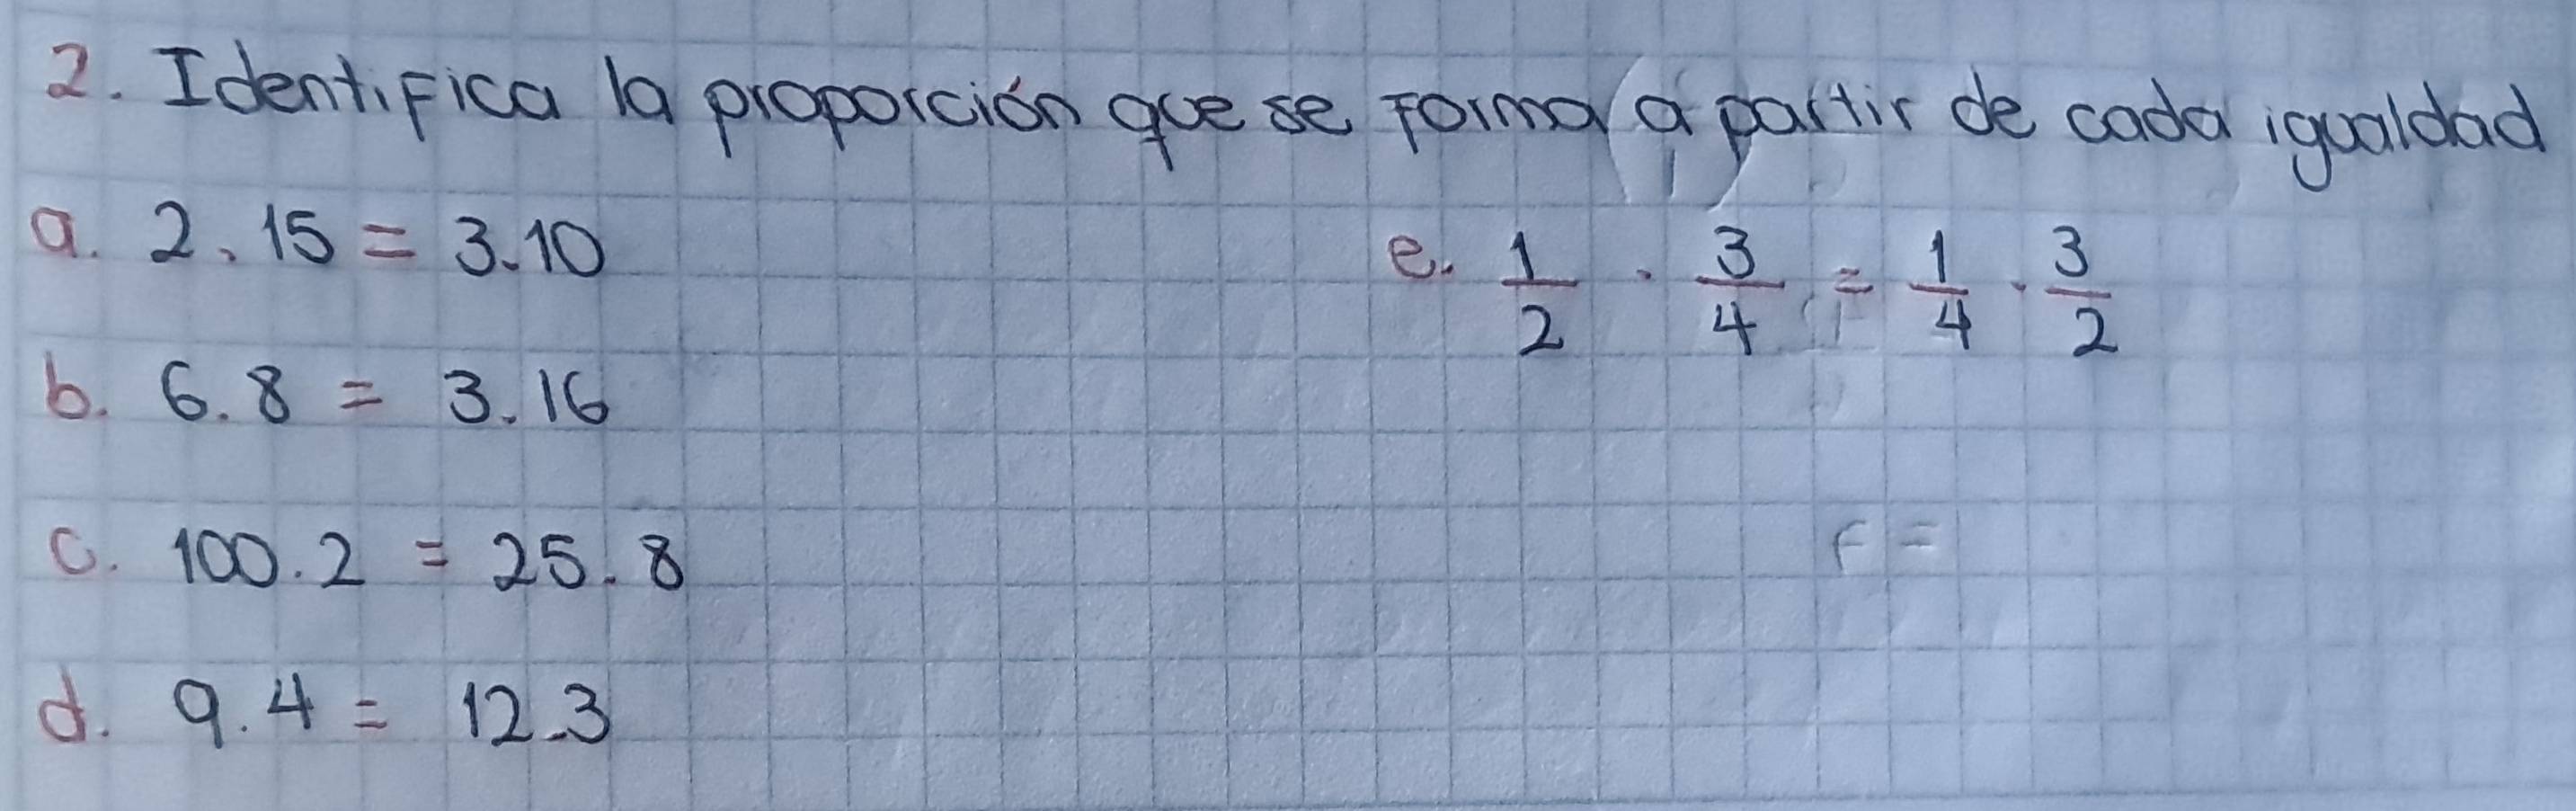 2. Identifica la proporción que se forma a partir de cada igualdad
a. 2.15 = 3.10
e. 1/2 · 3/4 = 1/4 · 3/2
b. 6.8 = 3.16
c. 100.2 = 25.8
d. 9.4 = 12.3